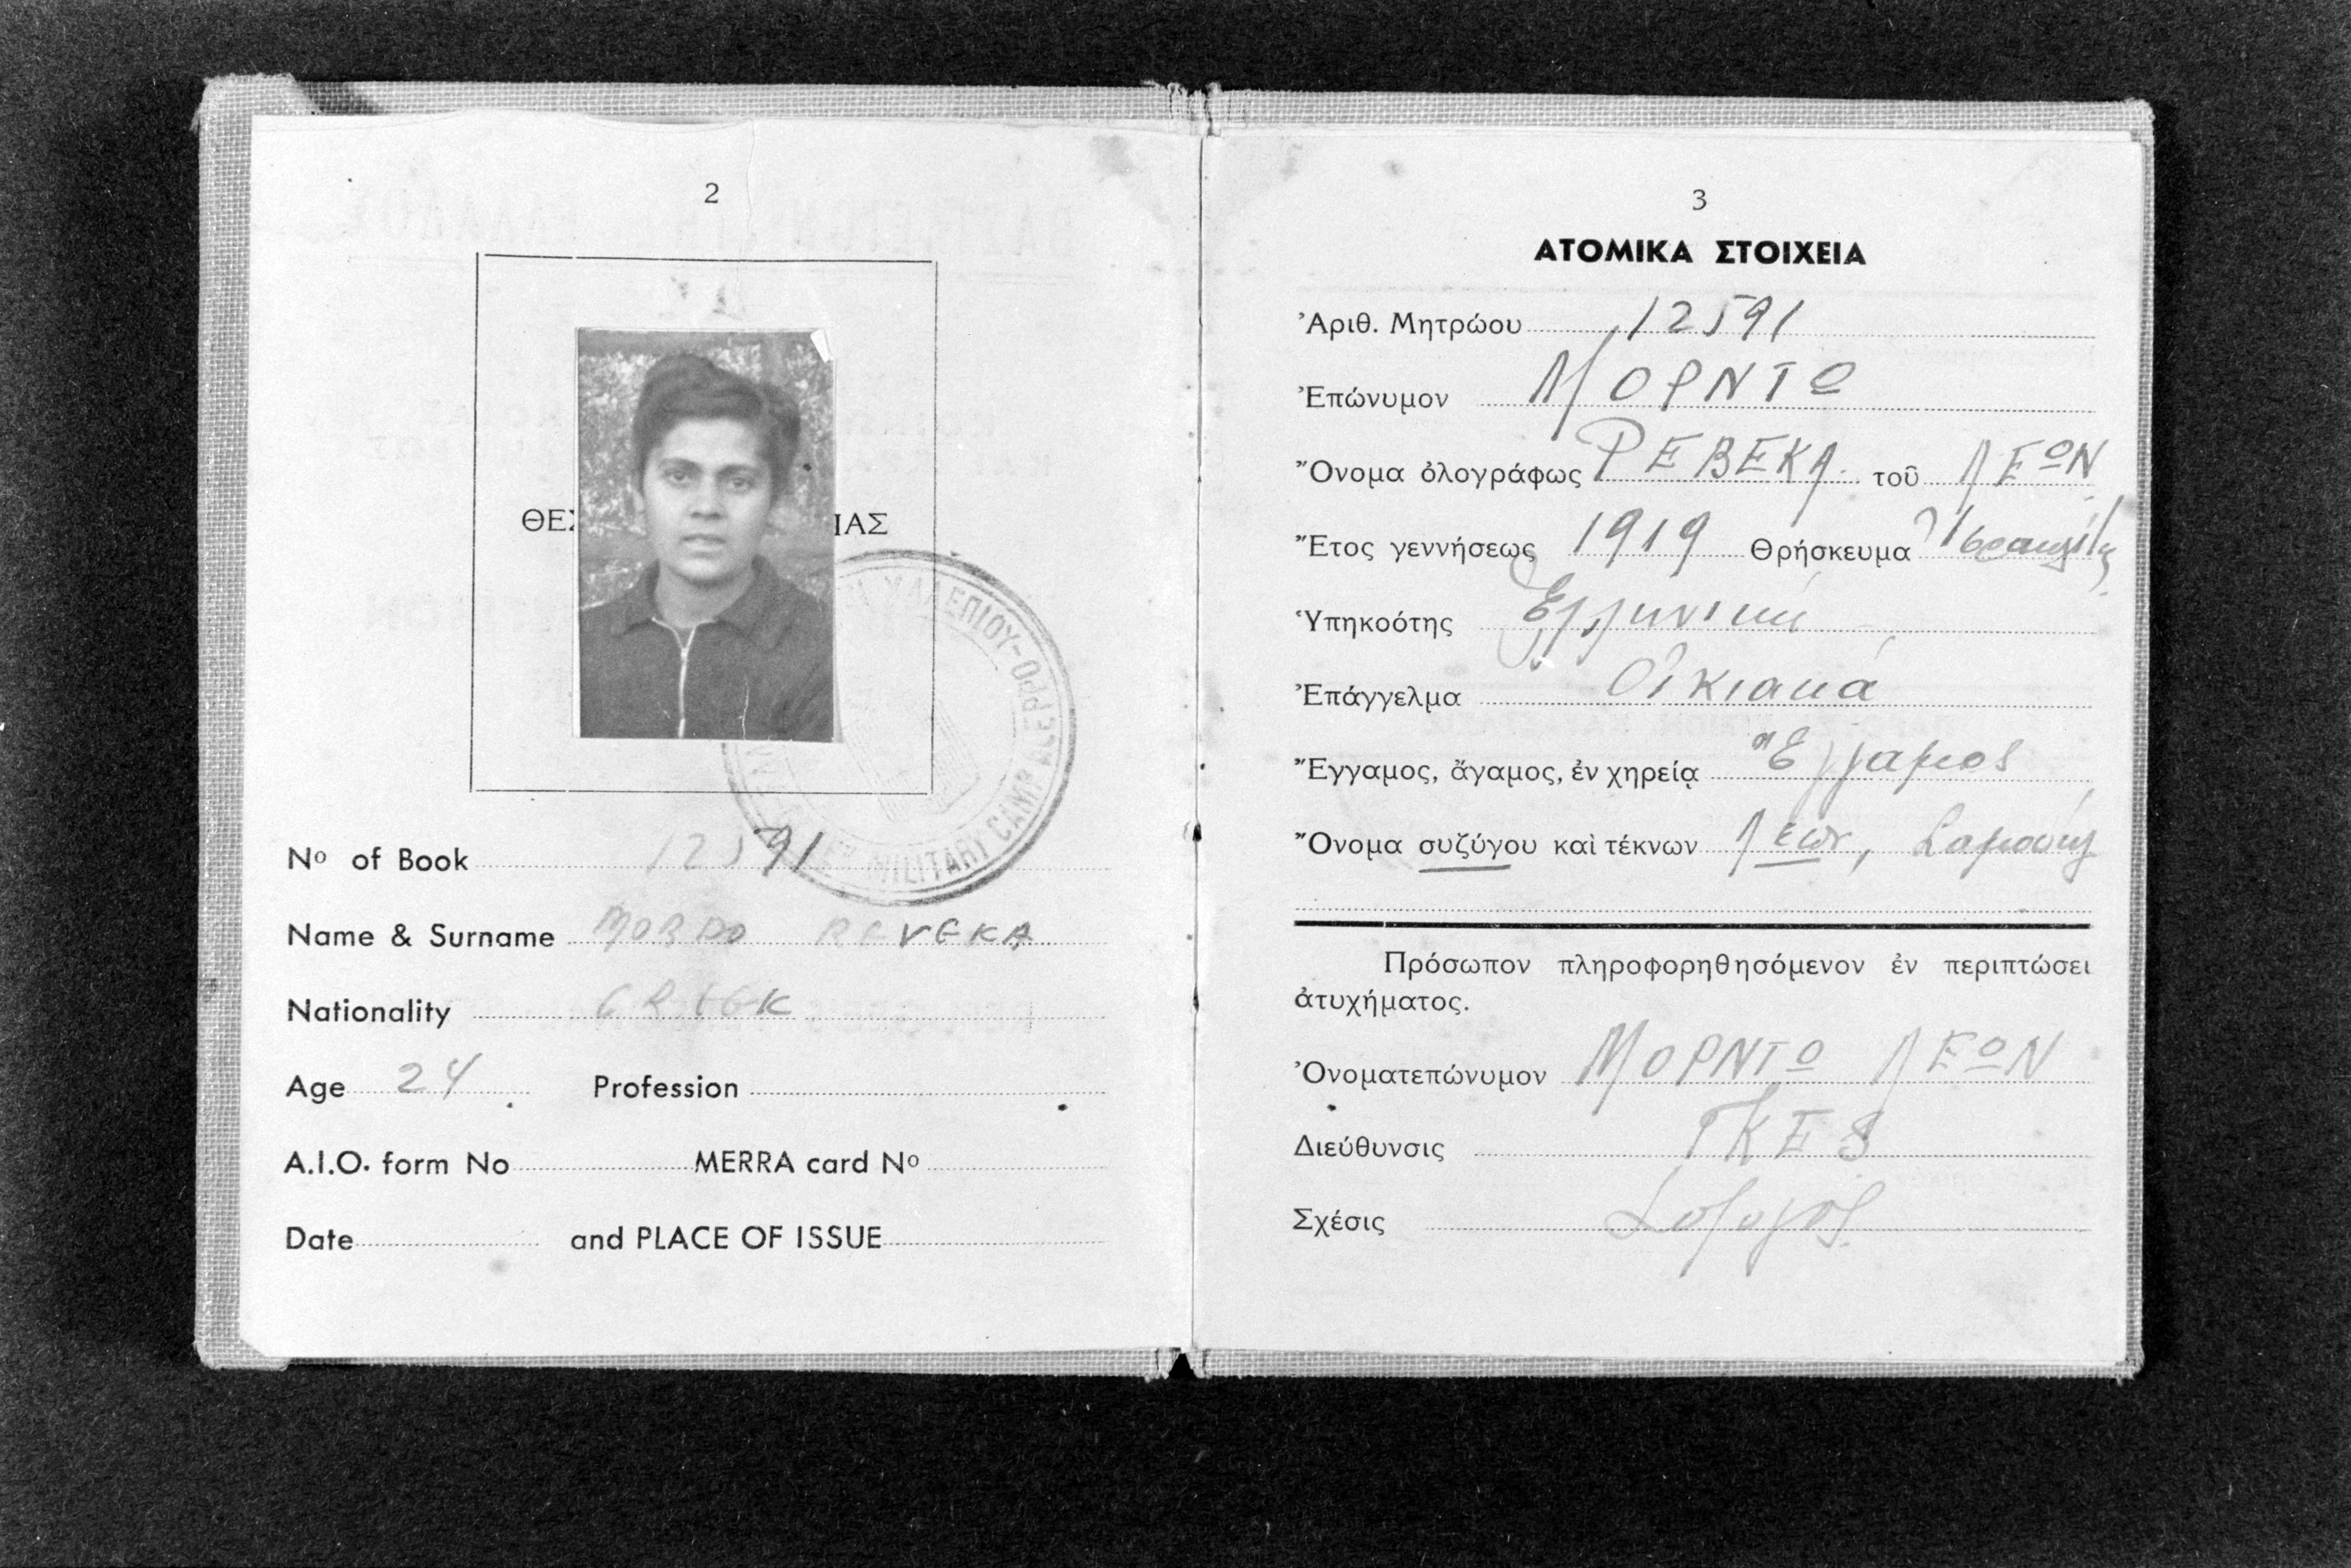 2
ΘΕΣ ΙΑΣ
ΥΑΛΕΠΙΟΥ-ΟΡΡΕΡΡΟ
MILITARY CAMP ALEPPO
Nº of Book 12591
Name & Surname MORDO REVEKA
Nationality GREEK
Age 24 Profession
A.I.O. form No MERRA card Nº
Date and PLACE OF ISSUE
3
ΑΤΟΜΙΚΑ ΣΤΟΙΧΕΙΑ
Ἀριθ. Μητρώου 12591
Ἐπώνυμον ΜΟΡΝΤΩ
Ὄνομα ὁλογράφως ΡΕΒΕΚΑ τοῦ ΛΕΩΝ
Ἔτος γεννήσεως 1919 Θρήσκευμα
Ὑπηκοότης Ἑλληνική
Ἐπάγγελμα Οἰκιακά
Ἔγγαμος, ἄγαμος, ἐν χηρείᾳ Ἔγγαμος
Ὄνομα συζύγου καὶ τέκνων Λεων, Σαμουήλ
Πρόσωπον πληροφορηθησόμενον ἐν περιπτώσει
ἀτυχήματος.
Ὀνοματεπώνυμον ΜΟΡΝΤΩ ΛΕΩΝ
Διεύθυνσις
Σχέσις Σύζυγος